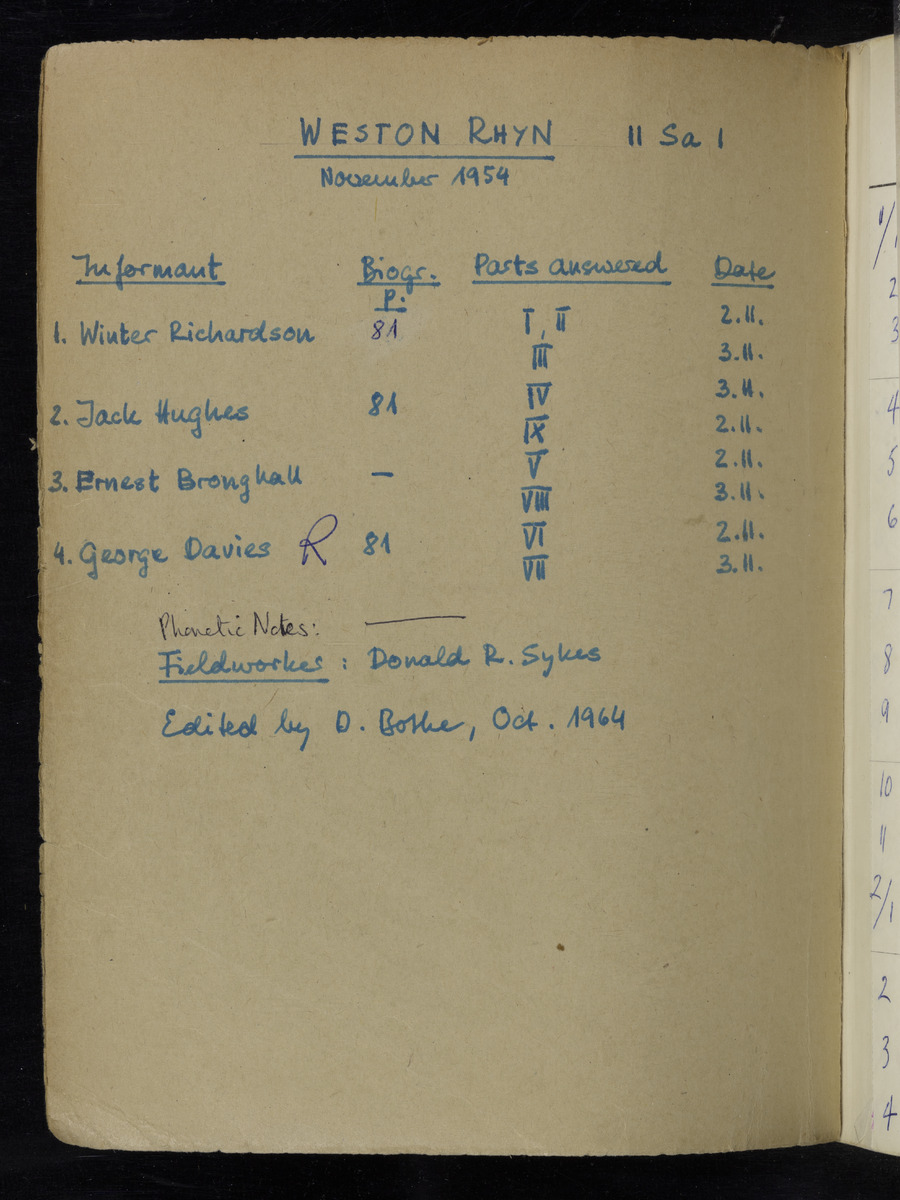 WESTON RHYN 11 Sa 1
November 1954
Informant Biogr. p. Parts answered Date
1. Winter Richardson 81 I, II 2.11.
III 3.11.
2. Jack Hughes 81 IV 3.11.
IX 2.11.
3. Ernest Broughall — V 2.11.
VIII 3.11.
4. George Davies R 81 VI 2.11.
VII 3.11.
Phonetic Notes: —
Fieldworker : Donald R. Sykes
Edited by D. Bothe, Oct. 1964
1/1
2
3
4
5
6
7
8
9
10
11
2/1
2
3
4